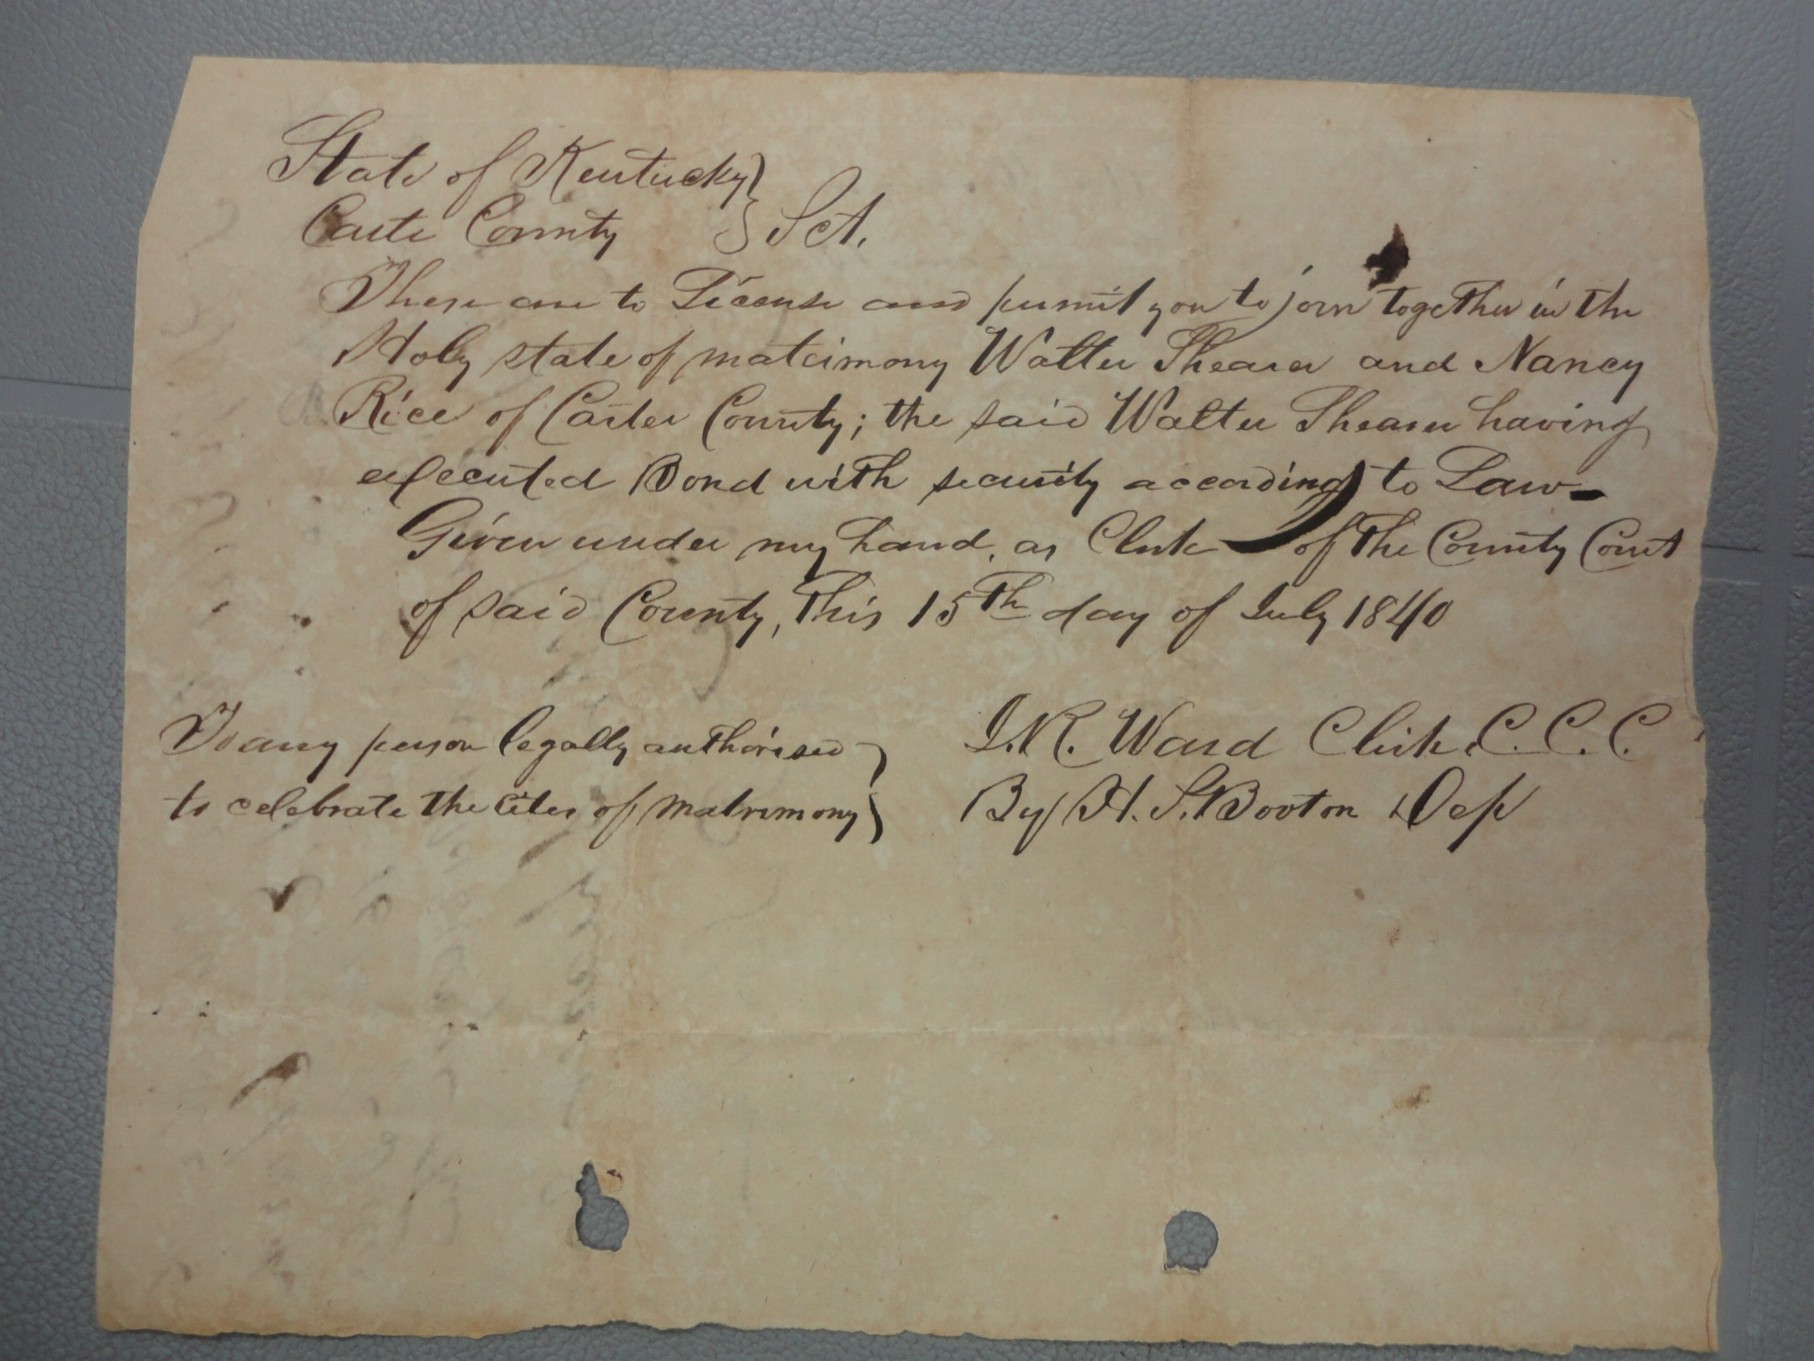 State of Kentucky }
Carter County } Sct.
These are to License and permit you to join together in the
Holy state of matrimony Walter Shearer and Nancy
Rice of Carter County; the said Walter Shearer having
executed Bond with security according to Law–
Given under my hand, as Clerk of the County Court
of said County, this 15th day of July 1840
To any person legally authorised }
to celebrate the rites of matrimony }
J. R. Ward Clerk C. C. C.
By H. S. Booton Dep